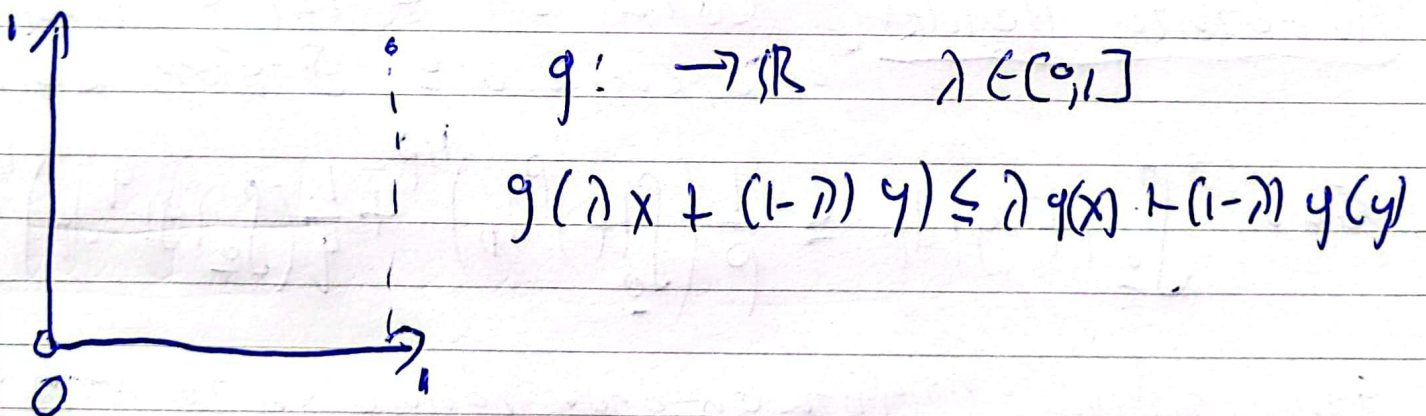 1
g: → ℝ λ ∈ [0,1]
g(λx + (1-λ) y) ≤ λ g(x) + (1-λ) g(y)
0 1